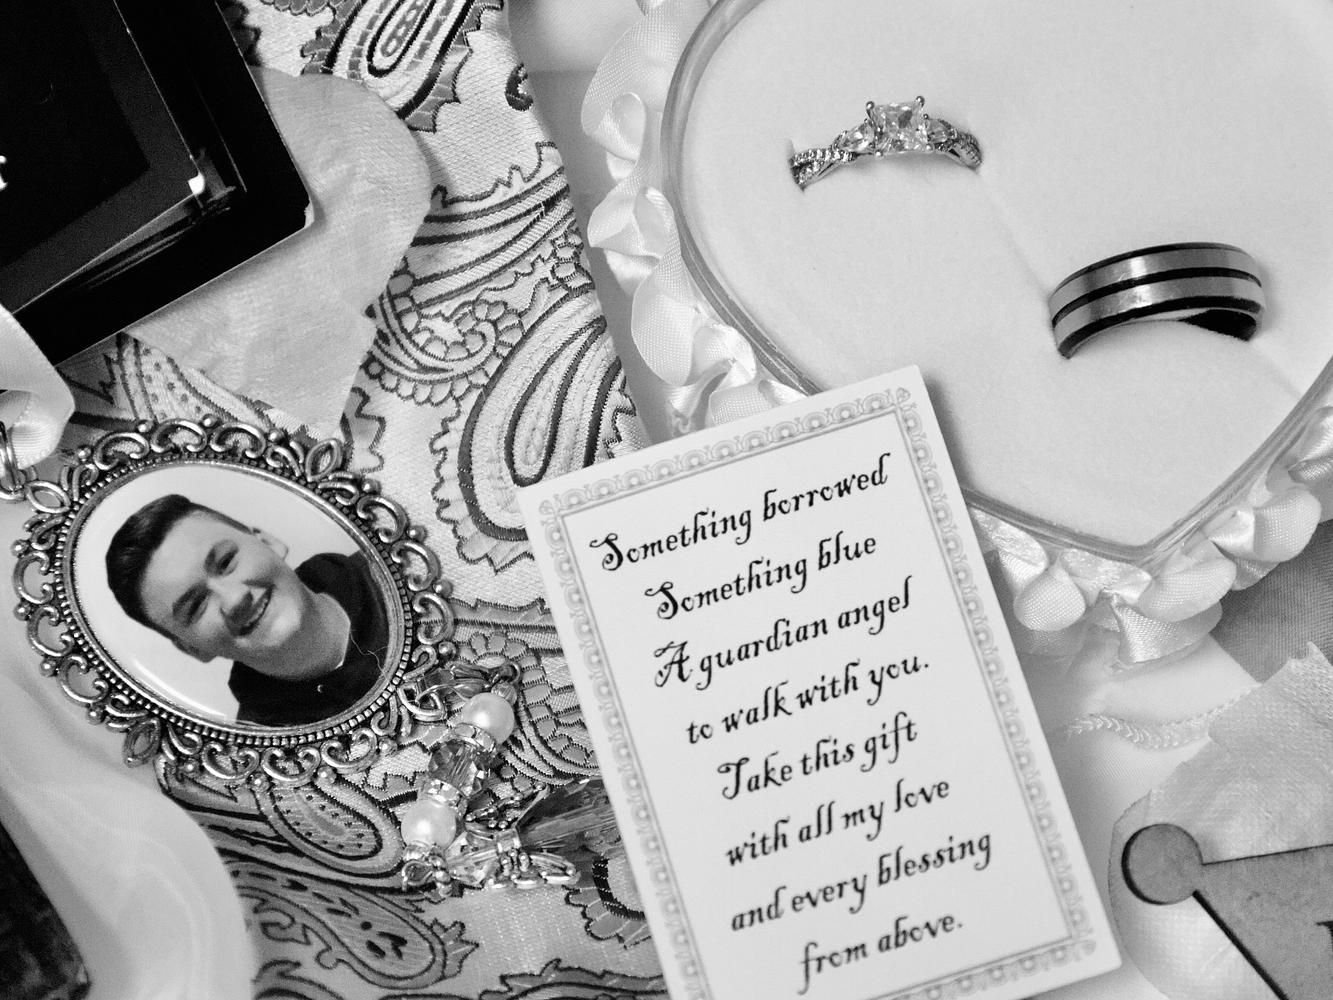 Something borrowed
Something blue
A guardian angel
to walk with you.
Take this gift
with all my love
and every blessing
from above.